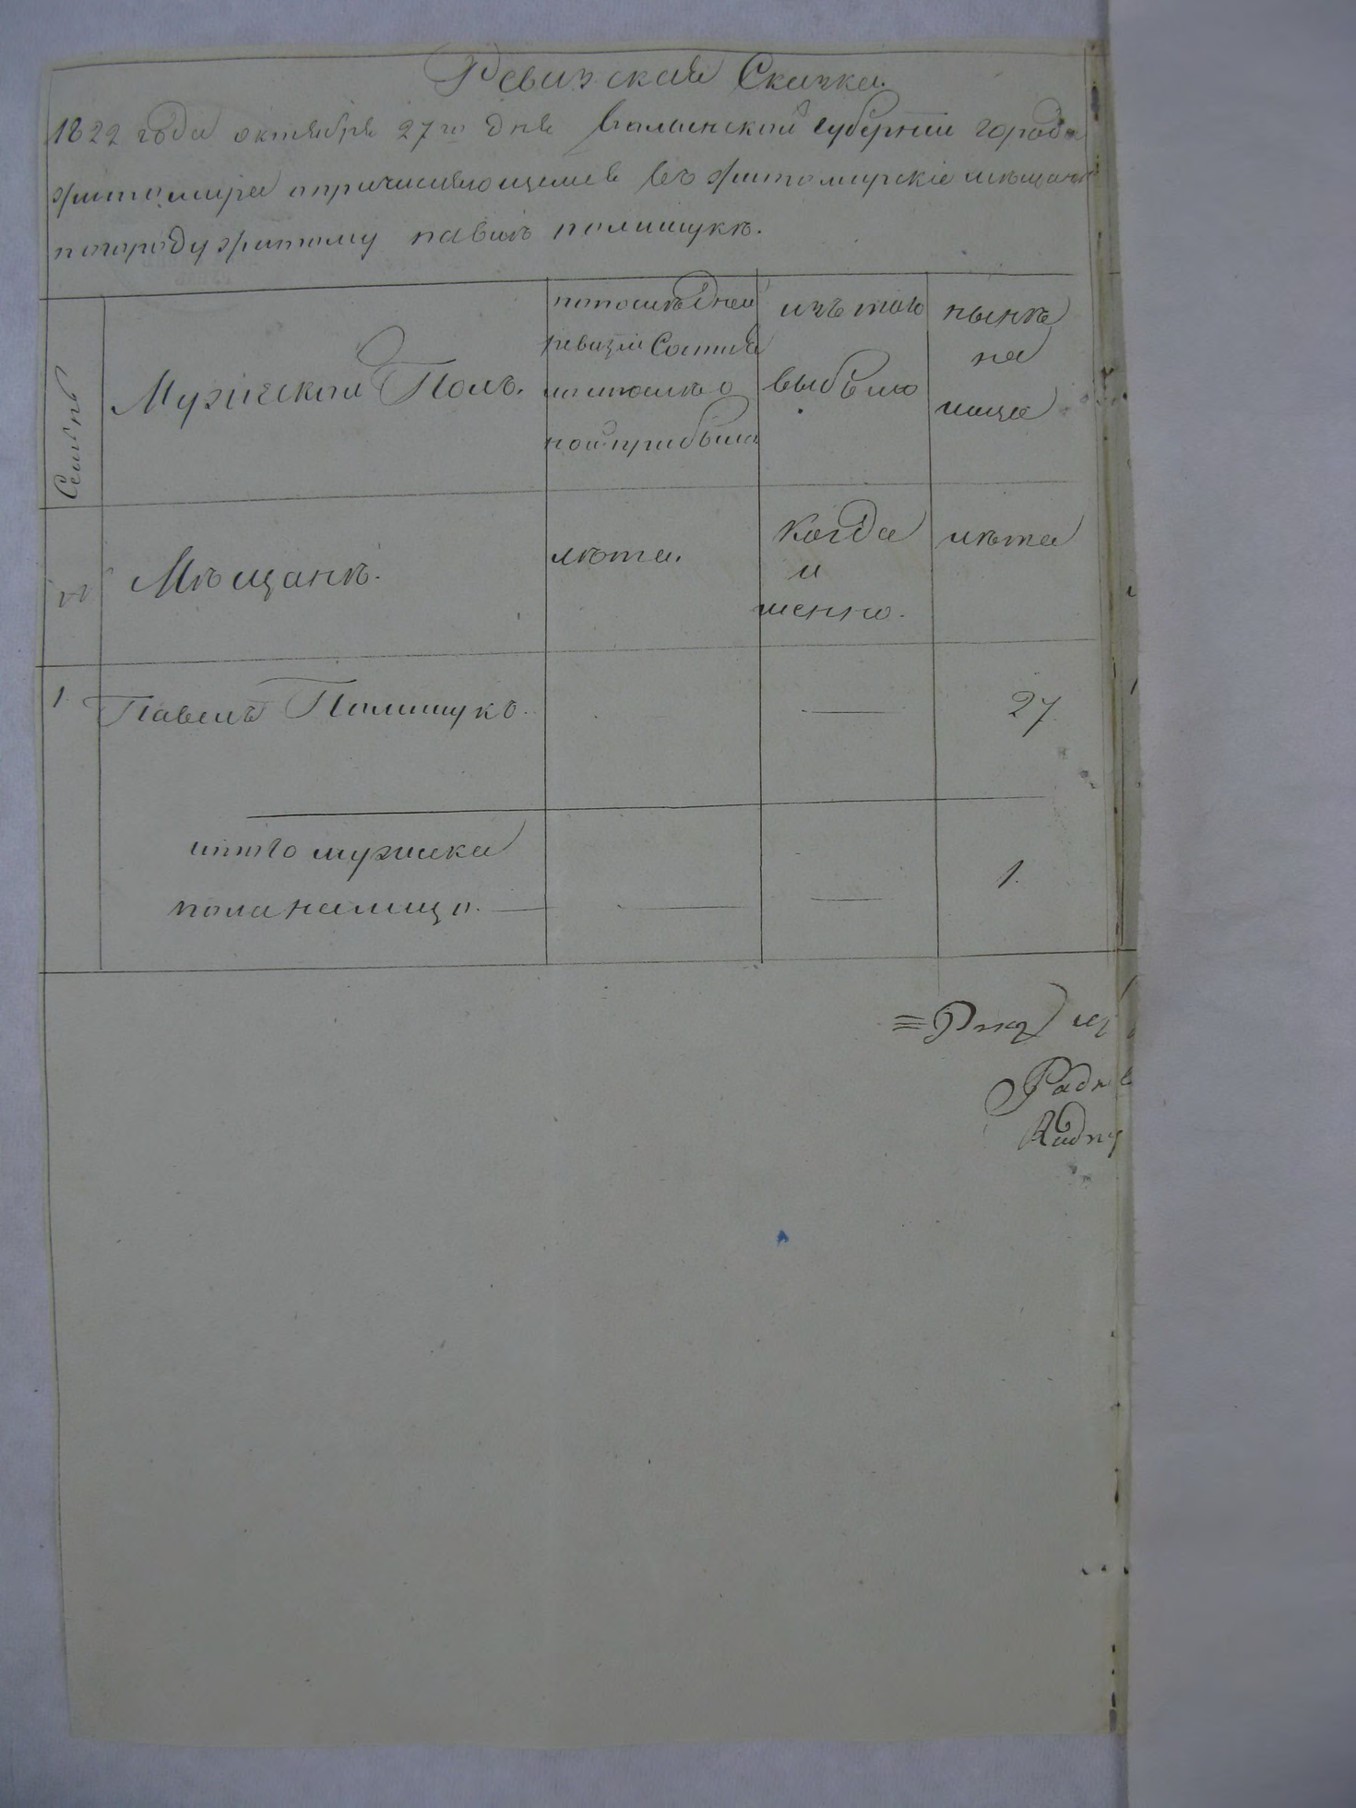 Ревизская Сказка.
1822 года октября 27го дня Волынской губернии города
житомира опричисляющемся въ житомирские мѣщане
погороду житомиру павлѣ полищукѣ.
Семьи
Мужеской Полъ.
попослѣдней
ревизіи Состояло
и послѣ
оной прибыло
изъ того
выбыло
нынѣ
на
лице
№
Мѣщанѣ.
лѣта.
Когда
и
менно.
лѣта
1. Павелъ Полищукъ. — 27
итого мужеска
пола налицо. — — — 1.